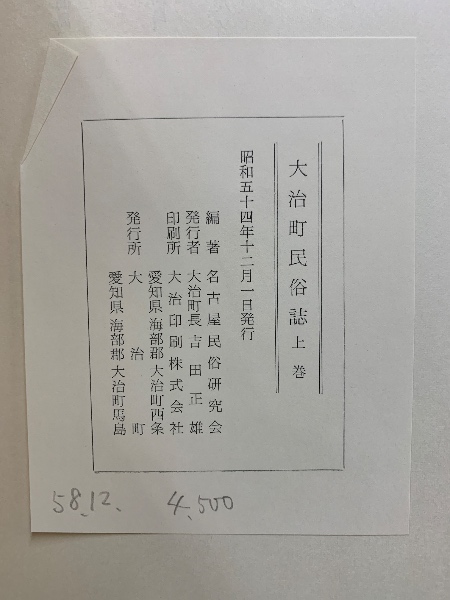 大治町民俗誌 上巻
昭和五十四年十二月一日発行
編著 名古屋民俗研究会
発行者 大治町長 吉田正雄
印刷所 大治印刷株式会社
愛知県海部郡大治町西条
発行所 大治町
愛知県海部郡大治町馬島
58.12. 4,500